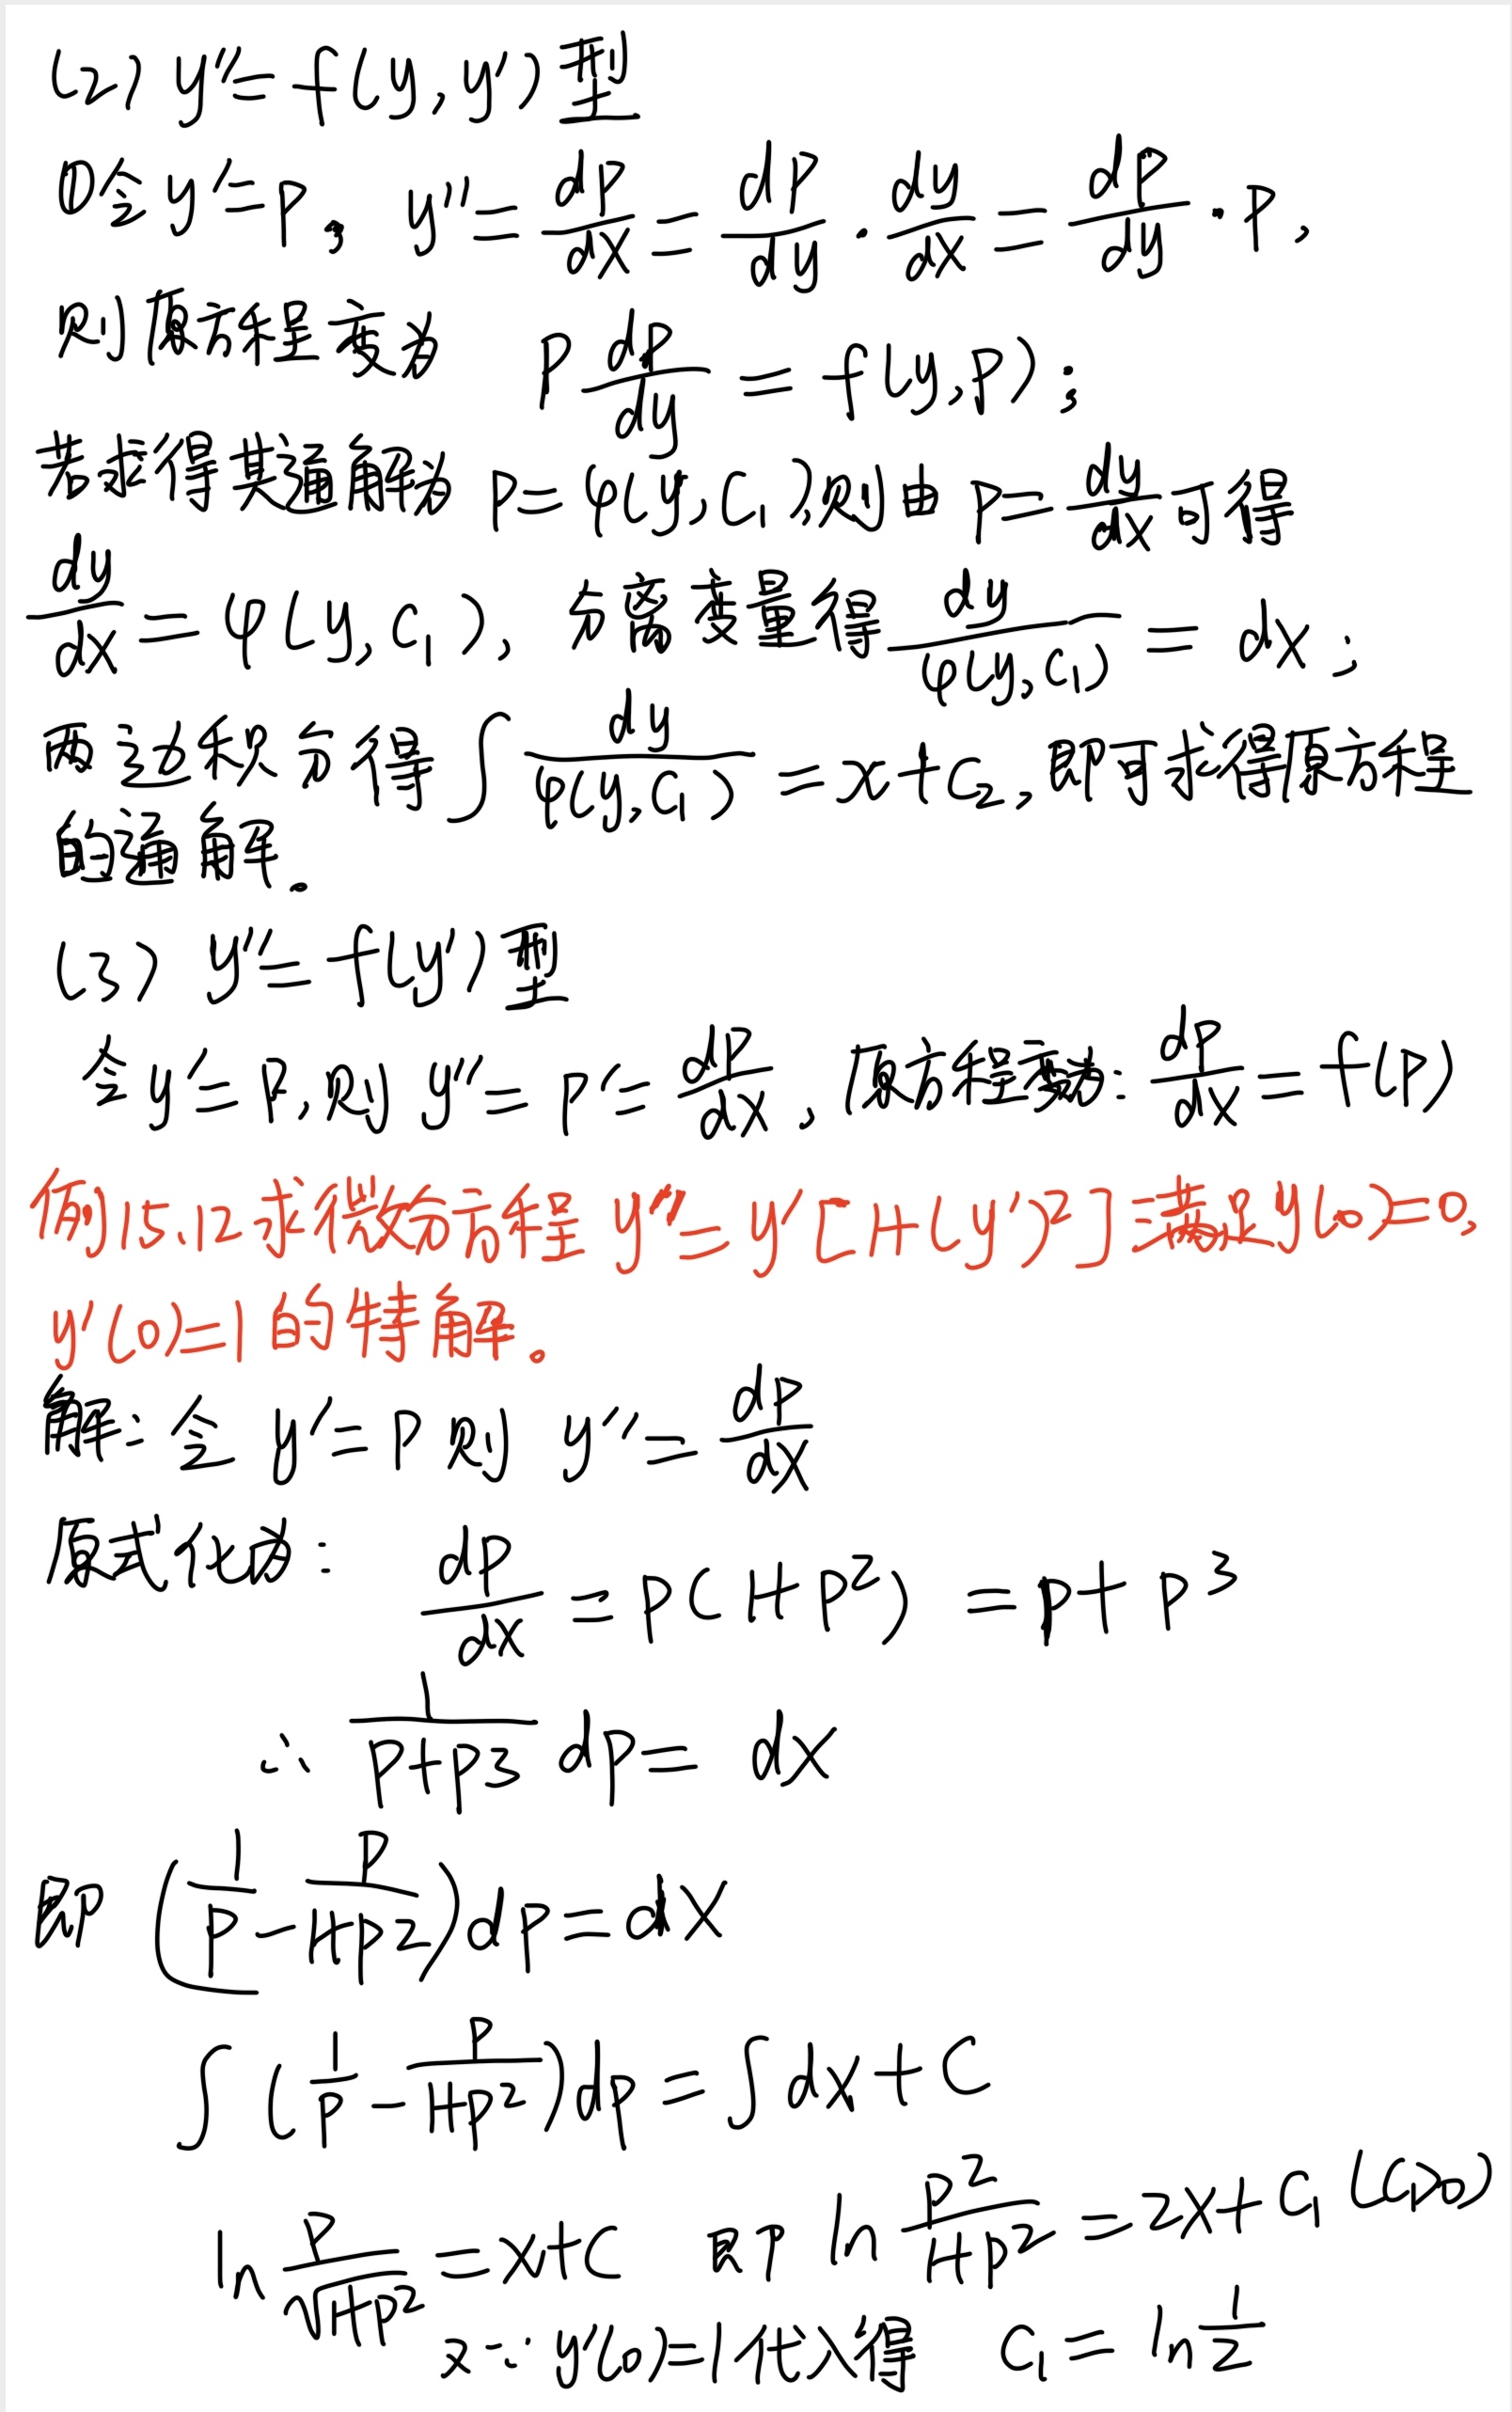 (2) y''=f(y,y')型
①令y'=p, y''=dp/dx=dp/dy·dy/dx=dp/dy·p,
则原方程变为 p dp/dy = f(y,p);
若求得其通解为 p=φ(y,C₁),则由 p=dy/dx可得
dy/dx=φ(y,C₁), 分离变量得 dy/φ(y,C₁) = dx;
两边积分得∫dy/φ(y,C₁) = x+C₂,即可求得原方程
的通解。
(3) y''=f(y')型
令y'=p,则y''=p'=dp/dx,原方程变为:dp/dx=f(p)
例15.12求微分方程y''=y'[1+(y')²]满足y(0)=0,
y'(0)=1的特解。
解:令y'=p则 y''=dp/dx
原式化为: dp/dx=p(1+p²) =p+p³
∴ 1/(p+p³) dp= dx
即(1/p-p/(1+p²))dp=dx
∫(1/p-p/(1+p²))dp=∫dx+C
ln p/√(1+p²)=x+C 即 ln p²/(1+p²)=2x+C₁(C₁>0)
又∵y'(0)=1代入得 C₁=ln 1/2